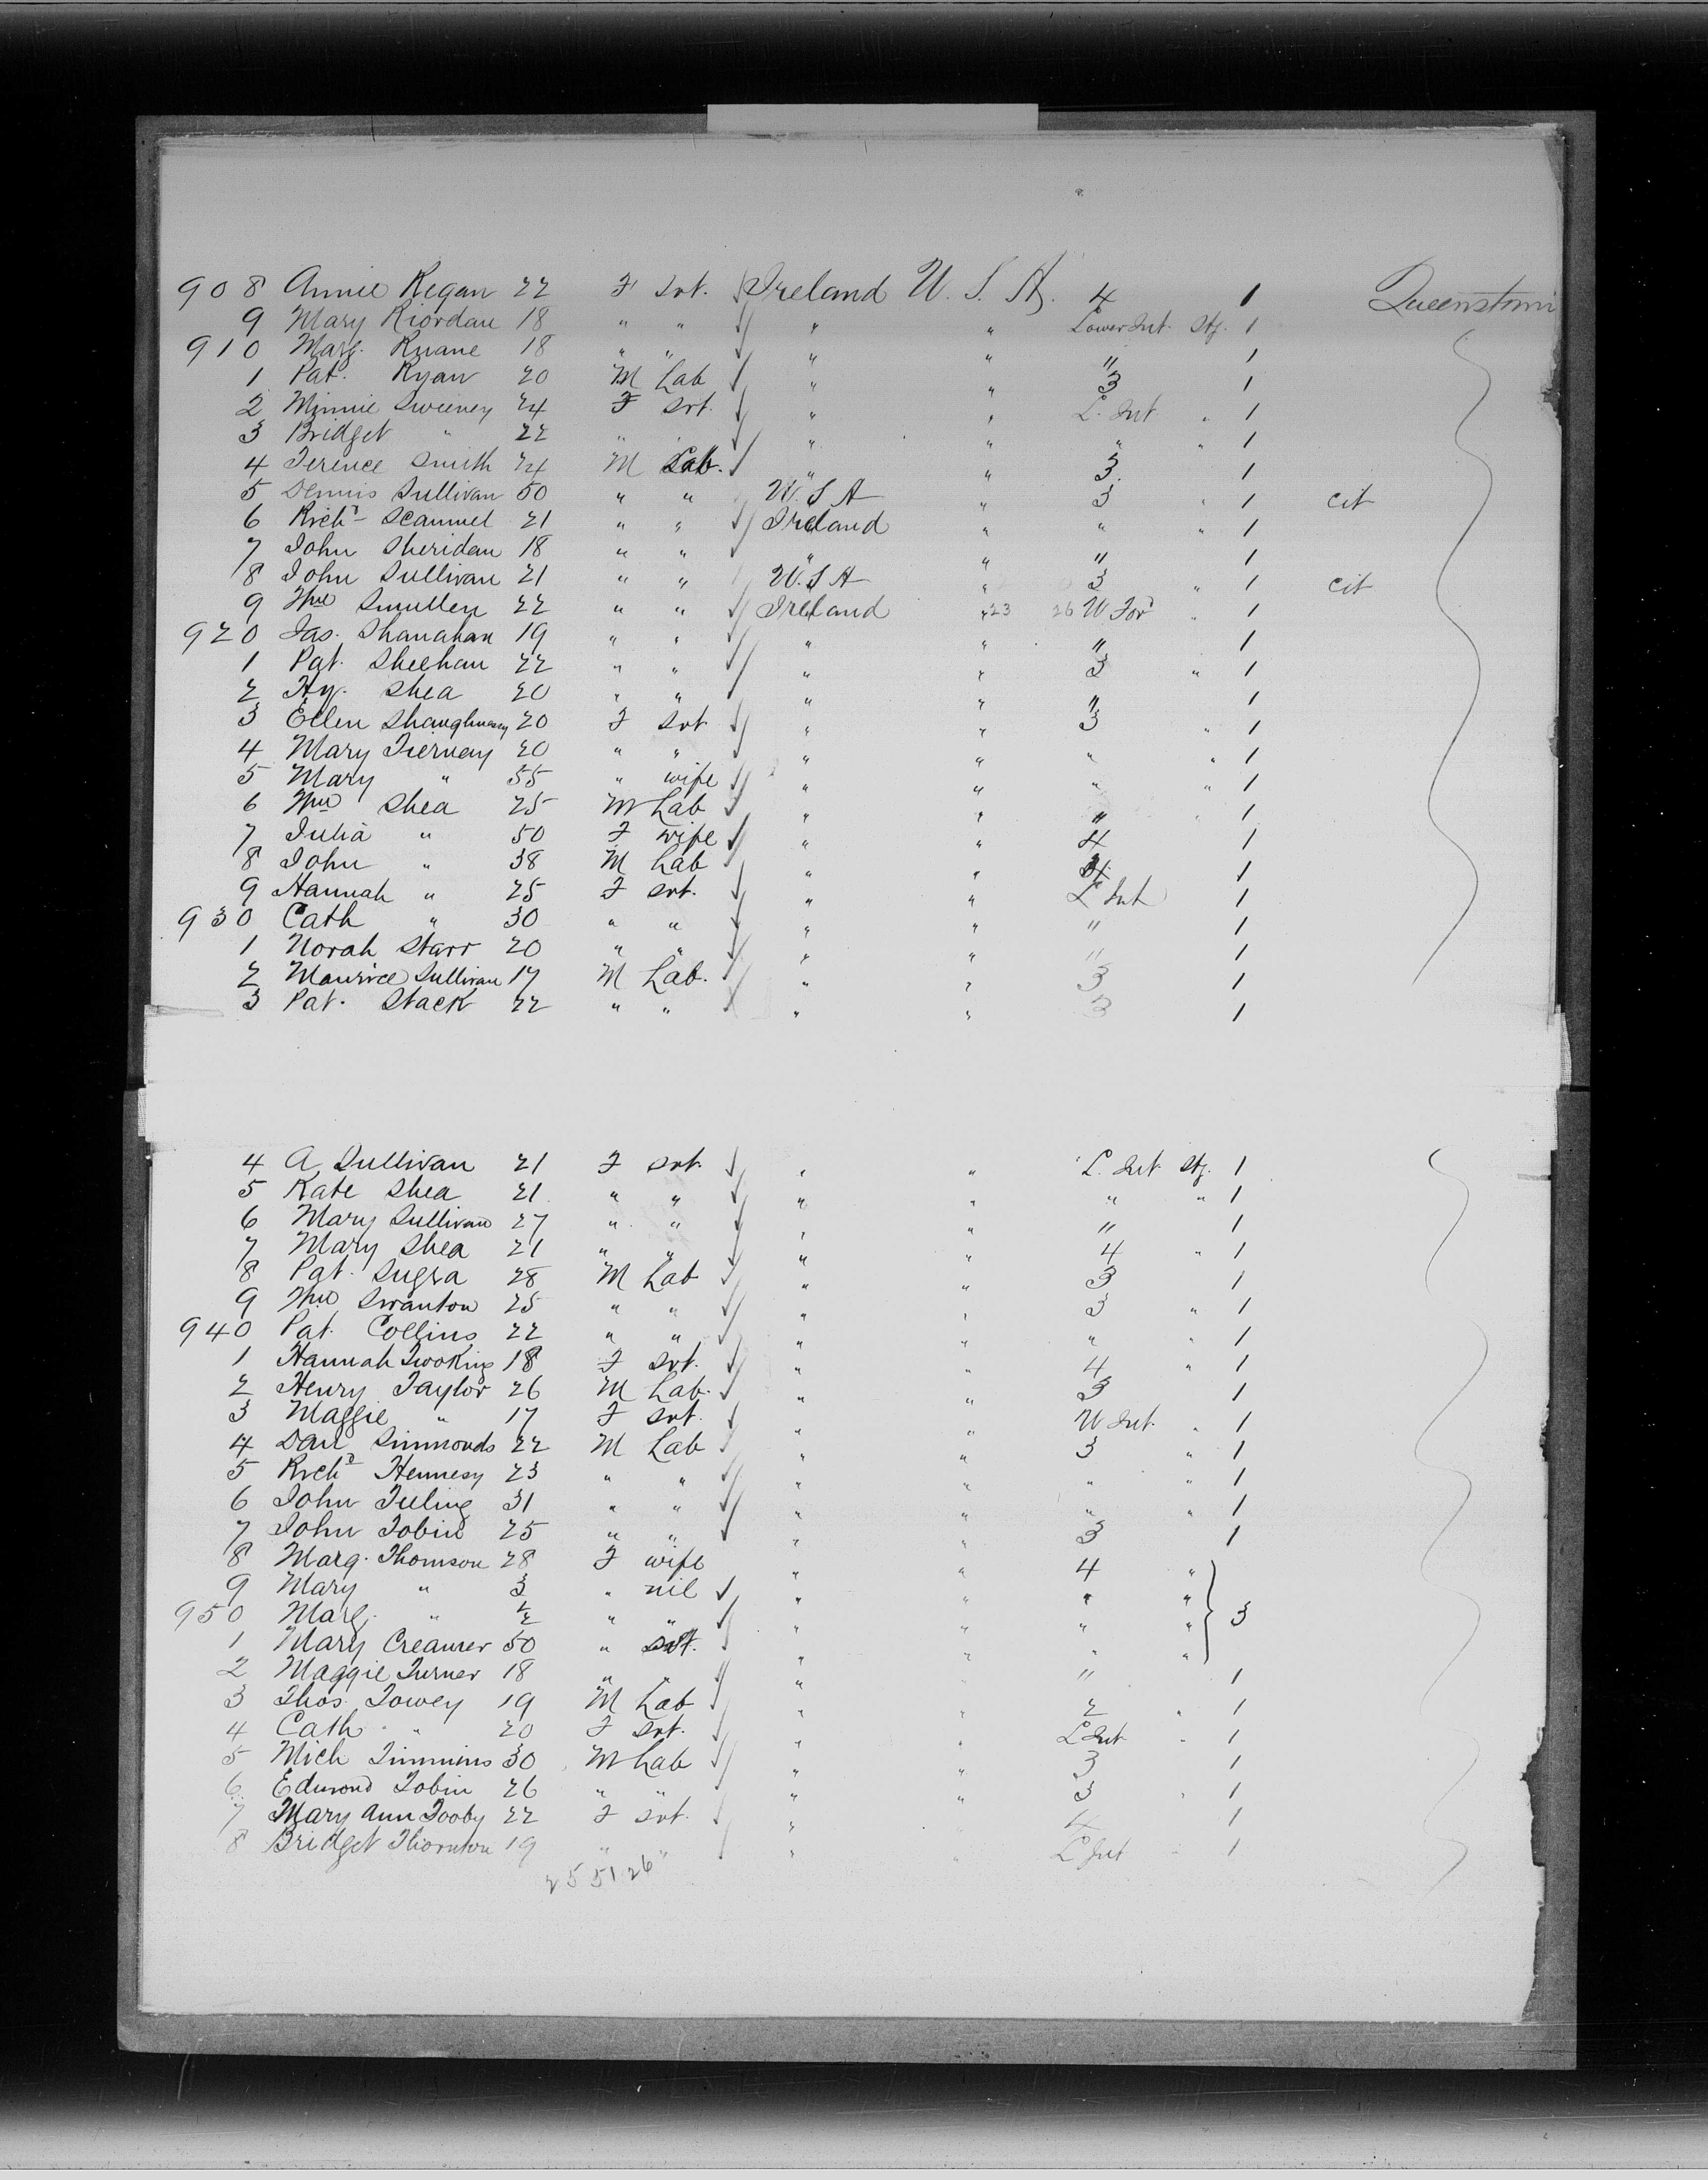 908 Annie Regan 22 F Svt. Ireland U. S. A. 4 1 Queenstown
9 Mary Riordan 18 " " " " Lower Int. Stg. 1
910 Marg. Ruane 18 " " " " " 1
1 Pat. Ryan 20 M Lab " " 3 1
2 Minnie Sweeney 24 F Svt. " " L. Int " 1
3 Bridget " 22 " " " " " " 1
4 Terence Smith 24 M Lab. " " 3 1
5 Dennis Sullivan 50 " " U. S A " 3 " 1 cit
6 Richd Scammel 21 " " Ireland " " " 1
7 John Sheridan 18 " " " " " 1
8 John Sullivan 21 " " U. S A " 3 " 1 cit
9 Wm Smullen 22 " " Ireland " 23 26 U For " 1
920 Jas. Shanahan 19 " " " " " 1
1 Pat. Sheehan 22 " " " " 3 " 1
2 Hy. Shea 20 " " " " " 1
3 Ellen Shaughnessy 20 F Svt " " 3 " 1
4 Mary Tierney 20 " " " " " " 1
5 Mary " 55 " wife " " " " 1
6 Wm Shea 25 M Lab " " " " 1
7 Julia " 50 F wife " " 4 1
8 John " 38 M Lab " " 1
9 Hannah " 25 F Svt. " " L Int 1
930 Cath " 30 " " " " " 1
1 Norah Starr 20 " " " " " 1
2 Maurice Sullivan 17 M Lab. " " 3 1
3 Pat. Stack 22 " " " " 3 1
4 A Sullivan 21 F Svt. " " L. Int Stg. 1
5 Kate Shea 21 " " " " " " 1
6 Mary Sullivan 27 " " " " " 1
7 Mary Shea 21 " " " " 4 " 1
8 Pat. Sugra 28 M Lab " " 3 1
9 Wm Swanton 25 " " " " 3 " 1
940 Pat. Collins 22 " " " " " " 1
1 Hannah 18 F Svt. " " 4 " 1
2 Henry Taylor 26 M Lab. " " 3 1
3 Maggie " 17 F Svt. " " U Int. " 1
4 Dan Simmonds 22 M Lab " " 3 " 1
5 Richd Hennesy 23 " " " " " " 1
6 John Tuling 31 " " " " " " 1
7 John Tobin 25 " " " " 3 1
8 Marg. Thomson 28 F wife " " 4 "
9 Mary " 3 " nil " " " " 3
950 Marg. " ½ " " " " " "
1 Mary Creamer 50 " Svt. " " " "
2 Maggie Turner 18 " " " " 1
3 Thos. Towey 19 M Lab " " 2 " 1
4 Cath " 20 F Svt. " " L Int " 1
5 Mich Timmins 30 M Lab " " 3 1
6 Edmond Tobin 26 " " " " 3 " 1
7 Mary Ann Tooby 22 F Svt. " " 4 1
8 Bridget Thornton 19 " " " " L Int " 1
25 51 26